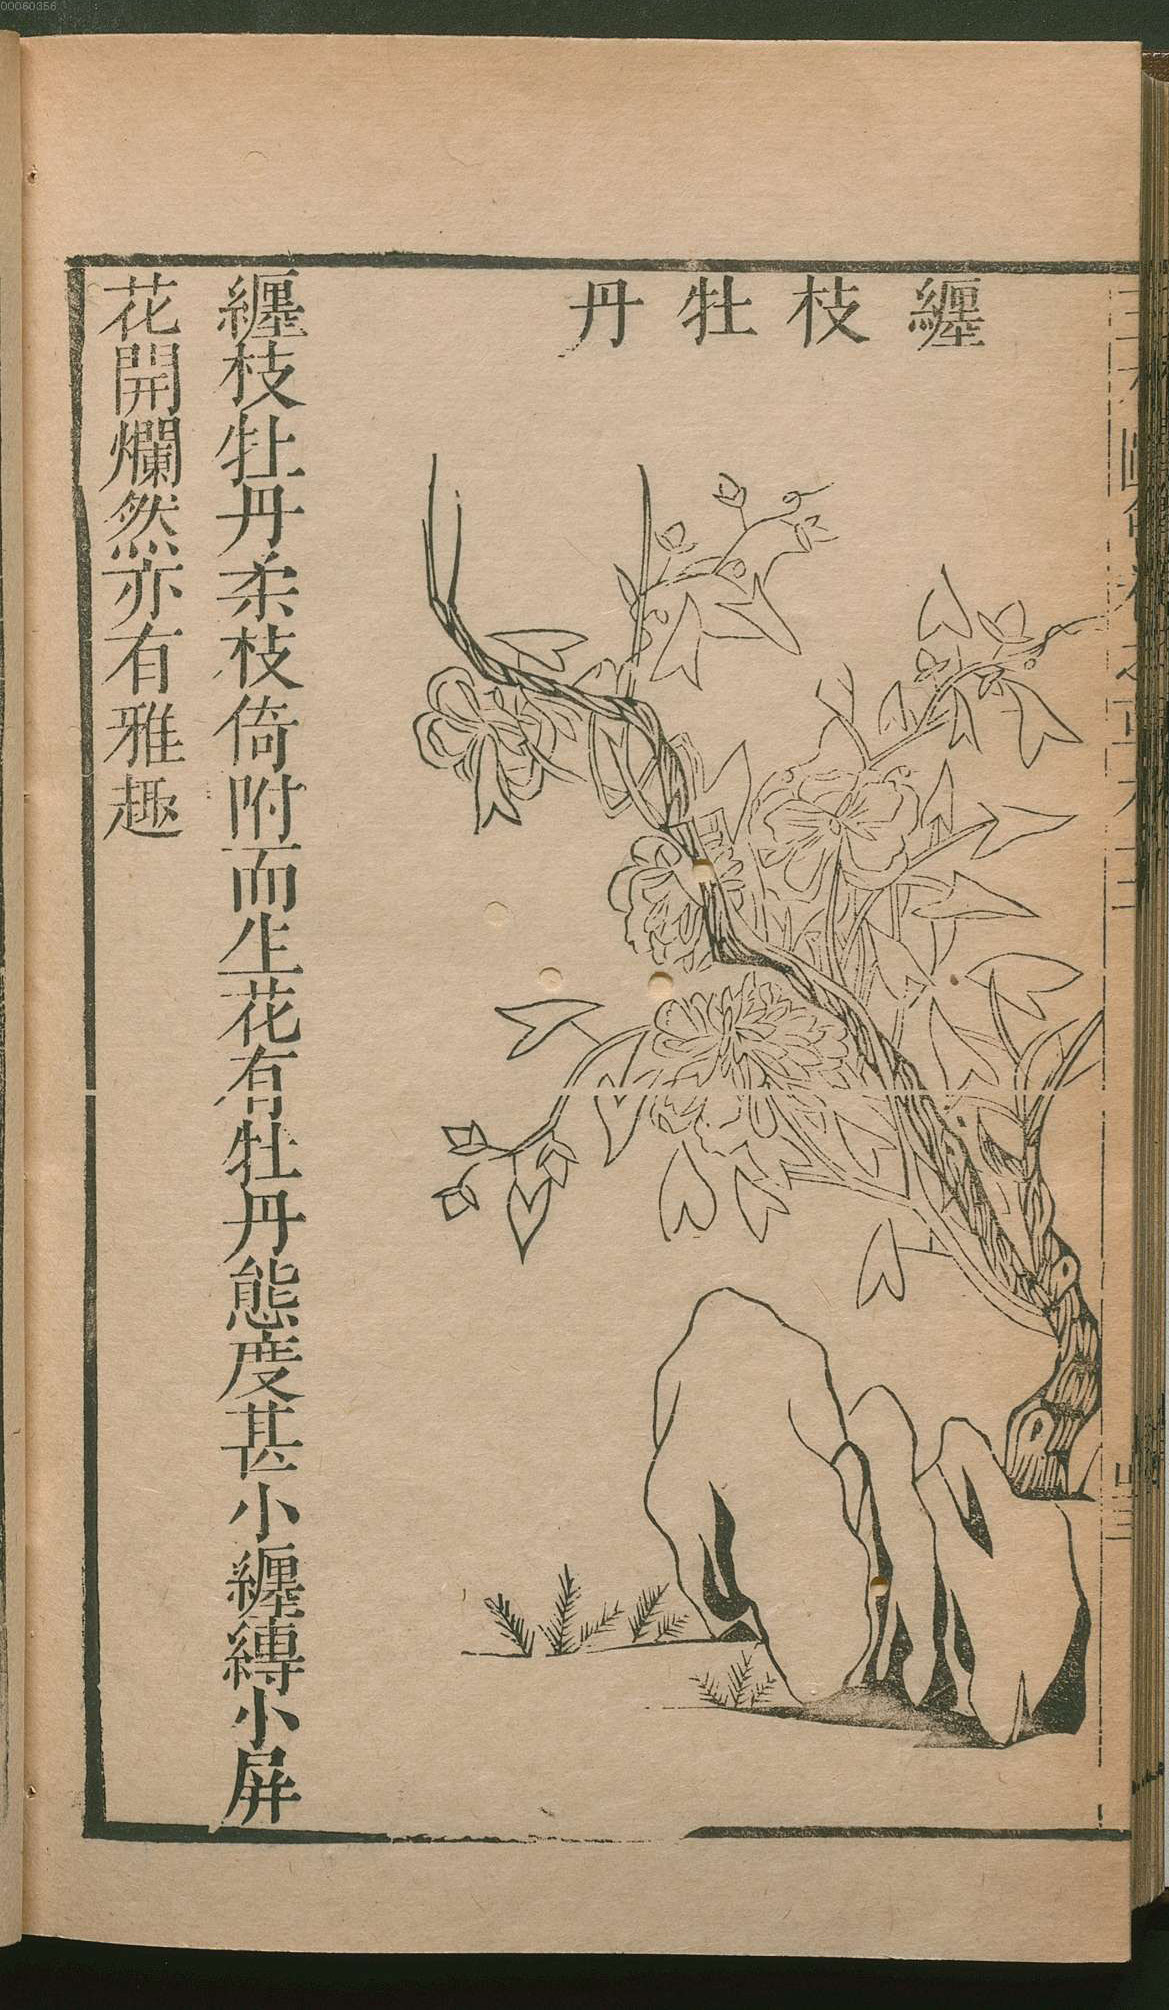 00060356
纏枝牡丹
纏枝牡丹柔枝倚附而生花有牡丹態度甚小纏縛小屏
花開爛然亦有雅趣